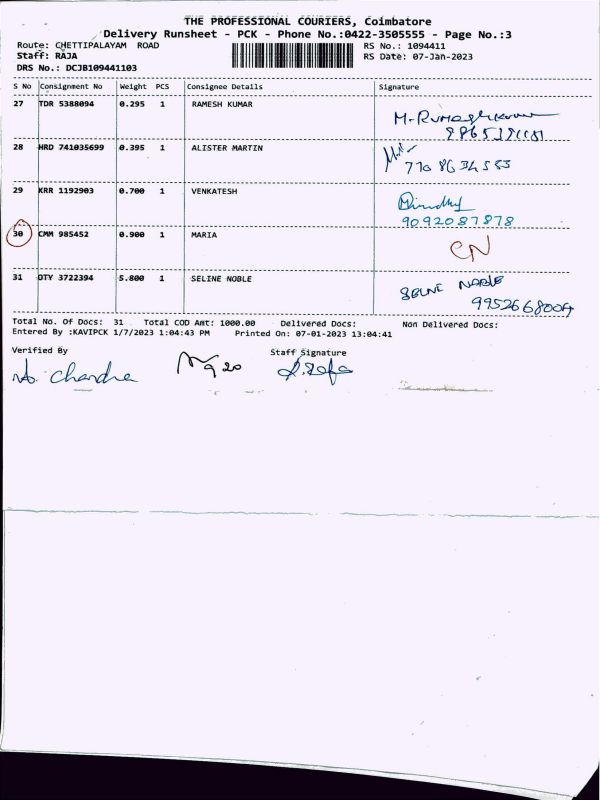 THE PROFESSIONAL COURIERS, Coimbatore
Delivery Runsheet - PCK - Phone No.:0422-3505555 - Page No.:3
Route: CHETTIPALAYAM ROAD RS No.: 1094411
Staff: RAJA RS Date: 07-Jan-2023
DRS No.: DCJB109441103
S No Consignment No Weight PCS Consignee Details Signature
27 TDR 5388094 0.295 1 RAMESH KUMAR
28 HRD 741035699 0.395 1 ALISTER MARTIN
770 8634553
29 KRR 1192903 0.700 1 VENKATESH
9092087878
30 CMM 985452 0.900 1 MARIA CN
31 DTY 3722394 5.800 1 SELINE NOBLE
SELNE NOBLE
9952668004
Total No. Of Docs: 31 Total COD Amt: 1000.00 Delivered Docs: Non Delivered Docs:
Entered By :KAVIPCK 1/7/2023 1:04:43 PM Printed On: 07-01-2023 13:04:41
Verified By Staff Signature
Chandra